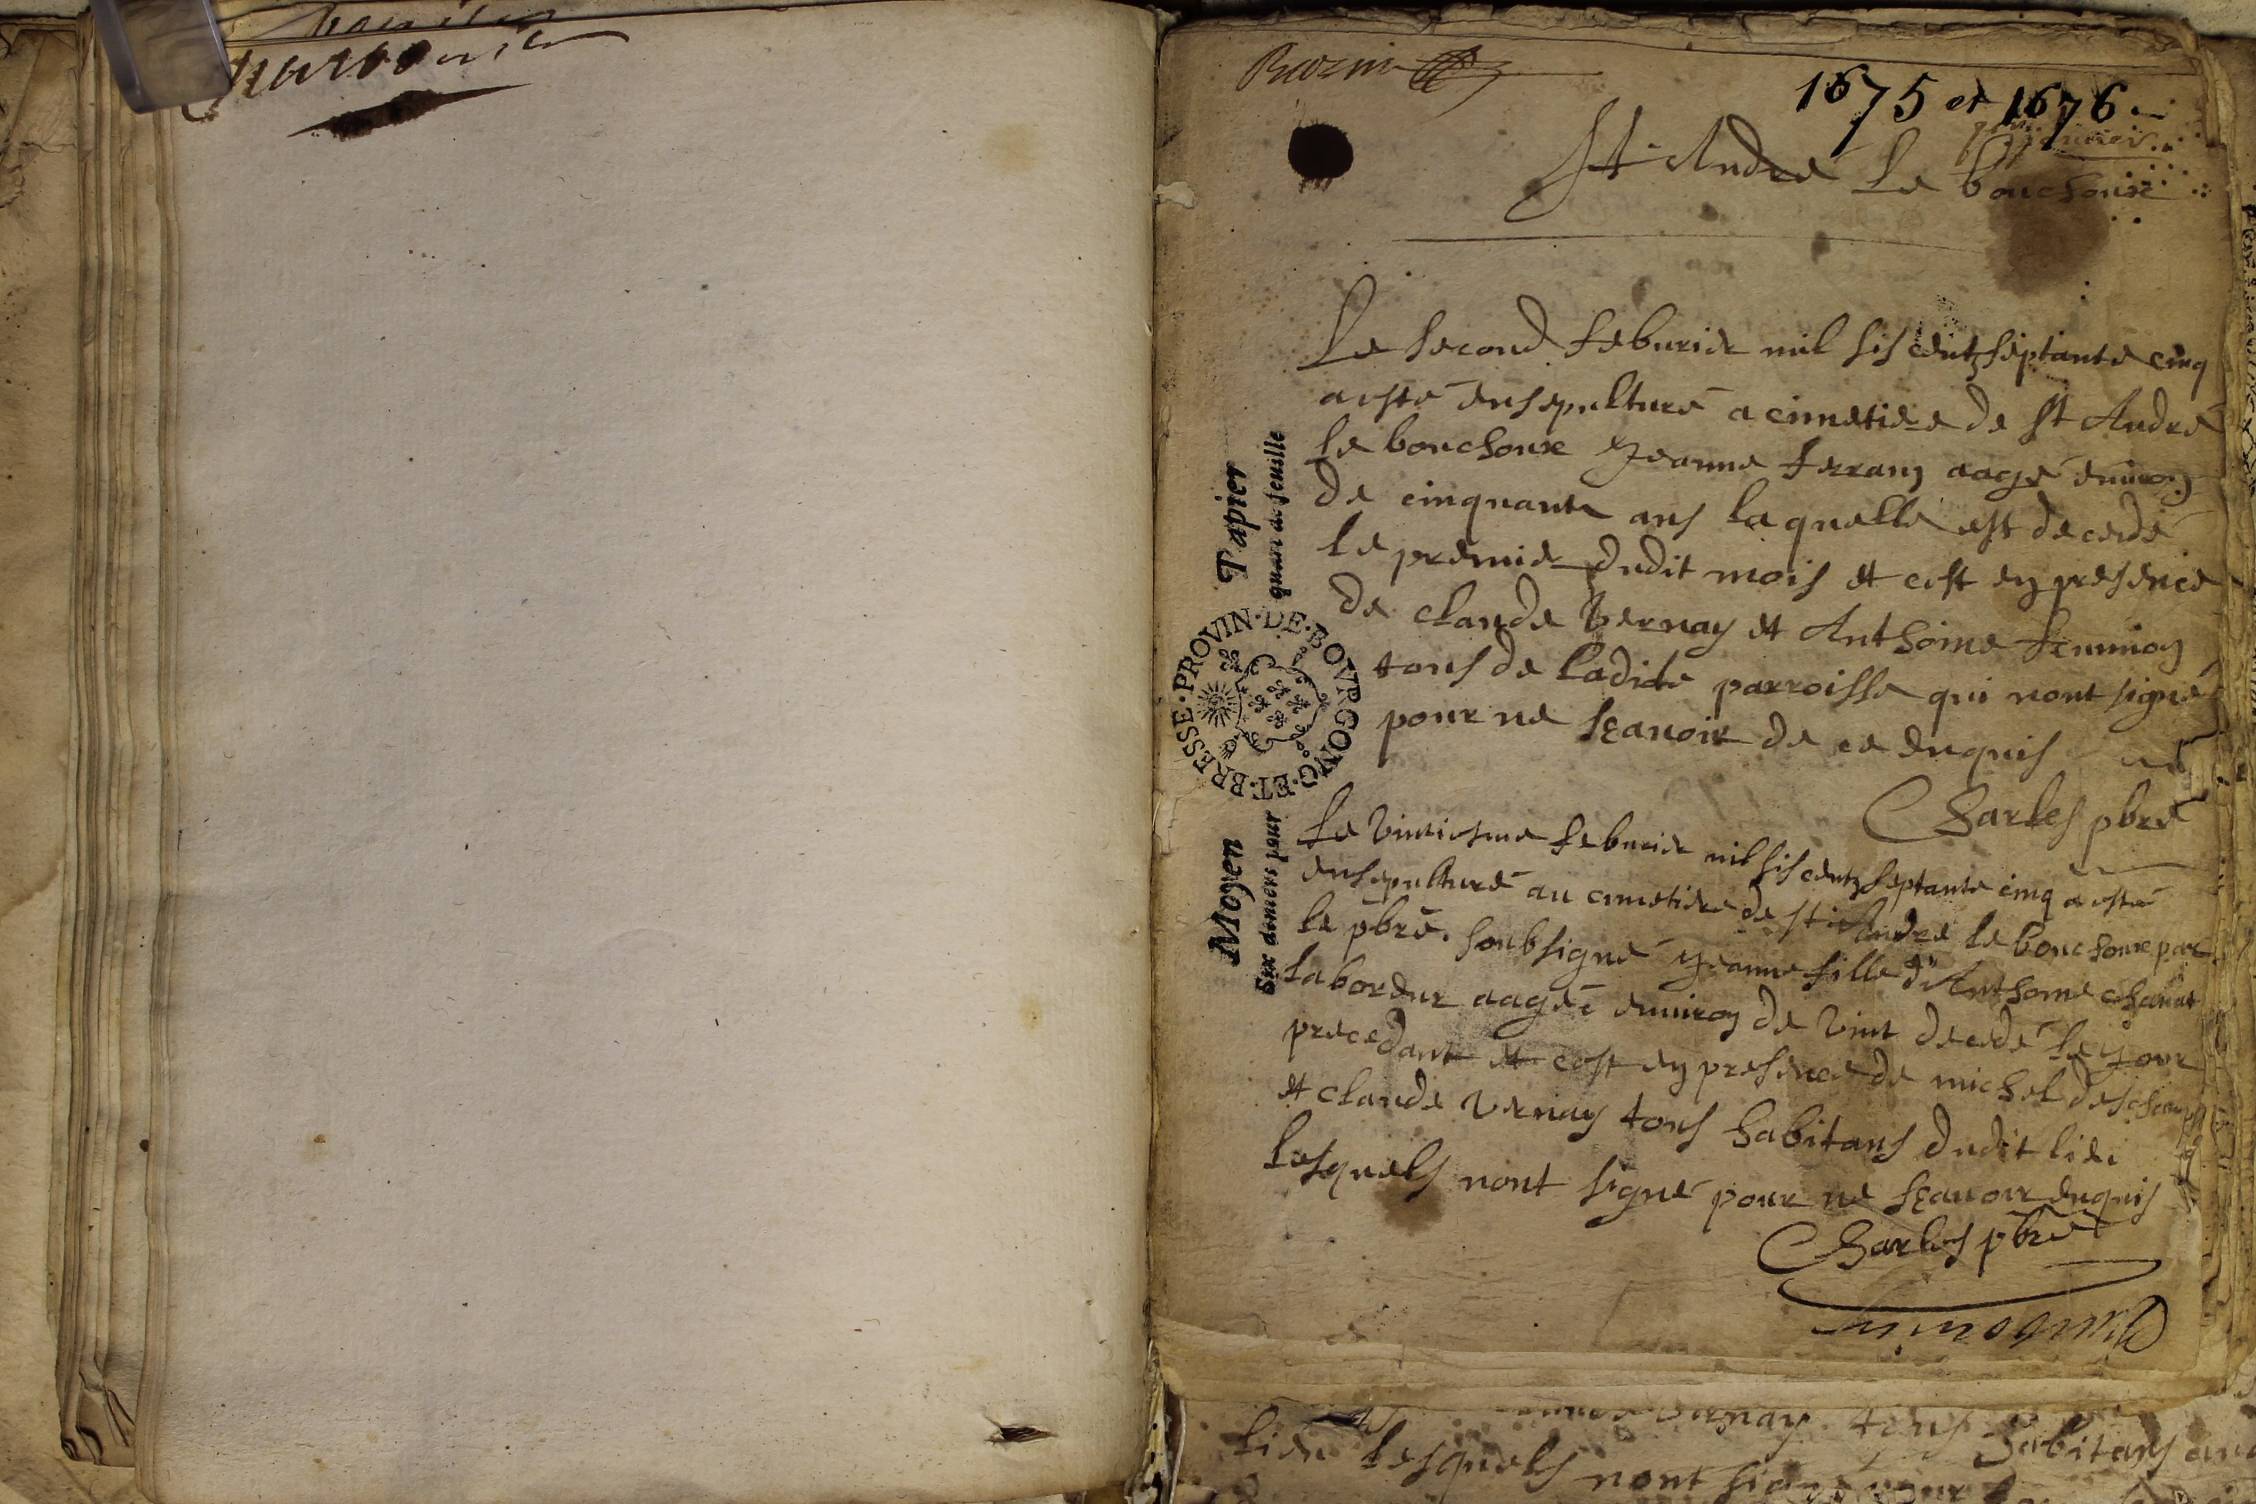 1675 et 1676
St Andre le bouchoux
Le second feburier mil sis centz septante cinq
a esté ensepulturé a cimetiere de St André
le bouchoux Jeanne ferrany aagé enuiron
de cinquante ans laquelle est decedé
le premier dudit mois et cest en presence
de claude Vernay et Anthoine
tous de ladite parroisse qui nont signé
pour ne sçauoir de ce enquis
Charles pbre
Le vintiesme feburier mil sis centz septante cinq a esté
ensepulturé au cimetiere de St Andre le bouchoux par
le pbre. soubsigné Jeanne fille d Anthoine chanat
laboreur aagée enuiron de vint decedé le jour
precedant et cest en presence de michel deschamps
et claude Vernay tous habitans dudit lieu
lesquels nont signé pour ne sçauoir enquis
Charles pbre
Papier
quart de feuille
PROVIN·DE·BOVRGONG·ET·BRESSE·
Moyen
Six deniers pour
Vernay tous habitans
lieu lesquels nont